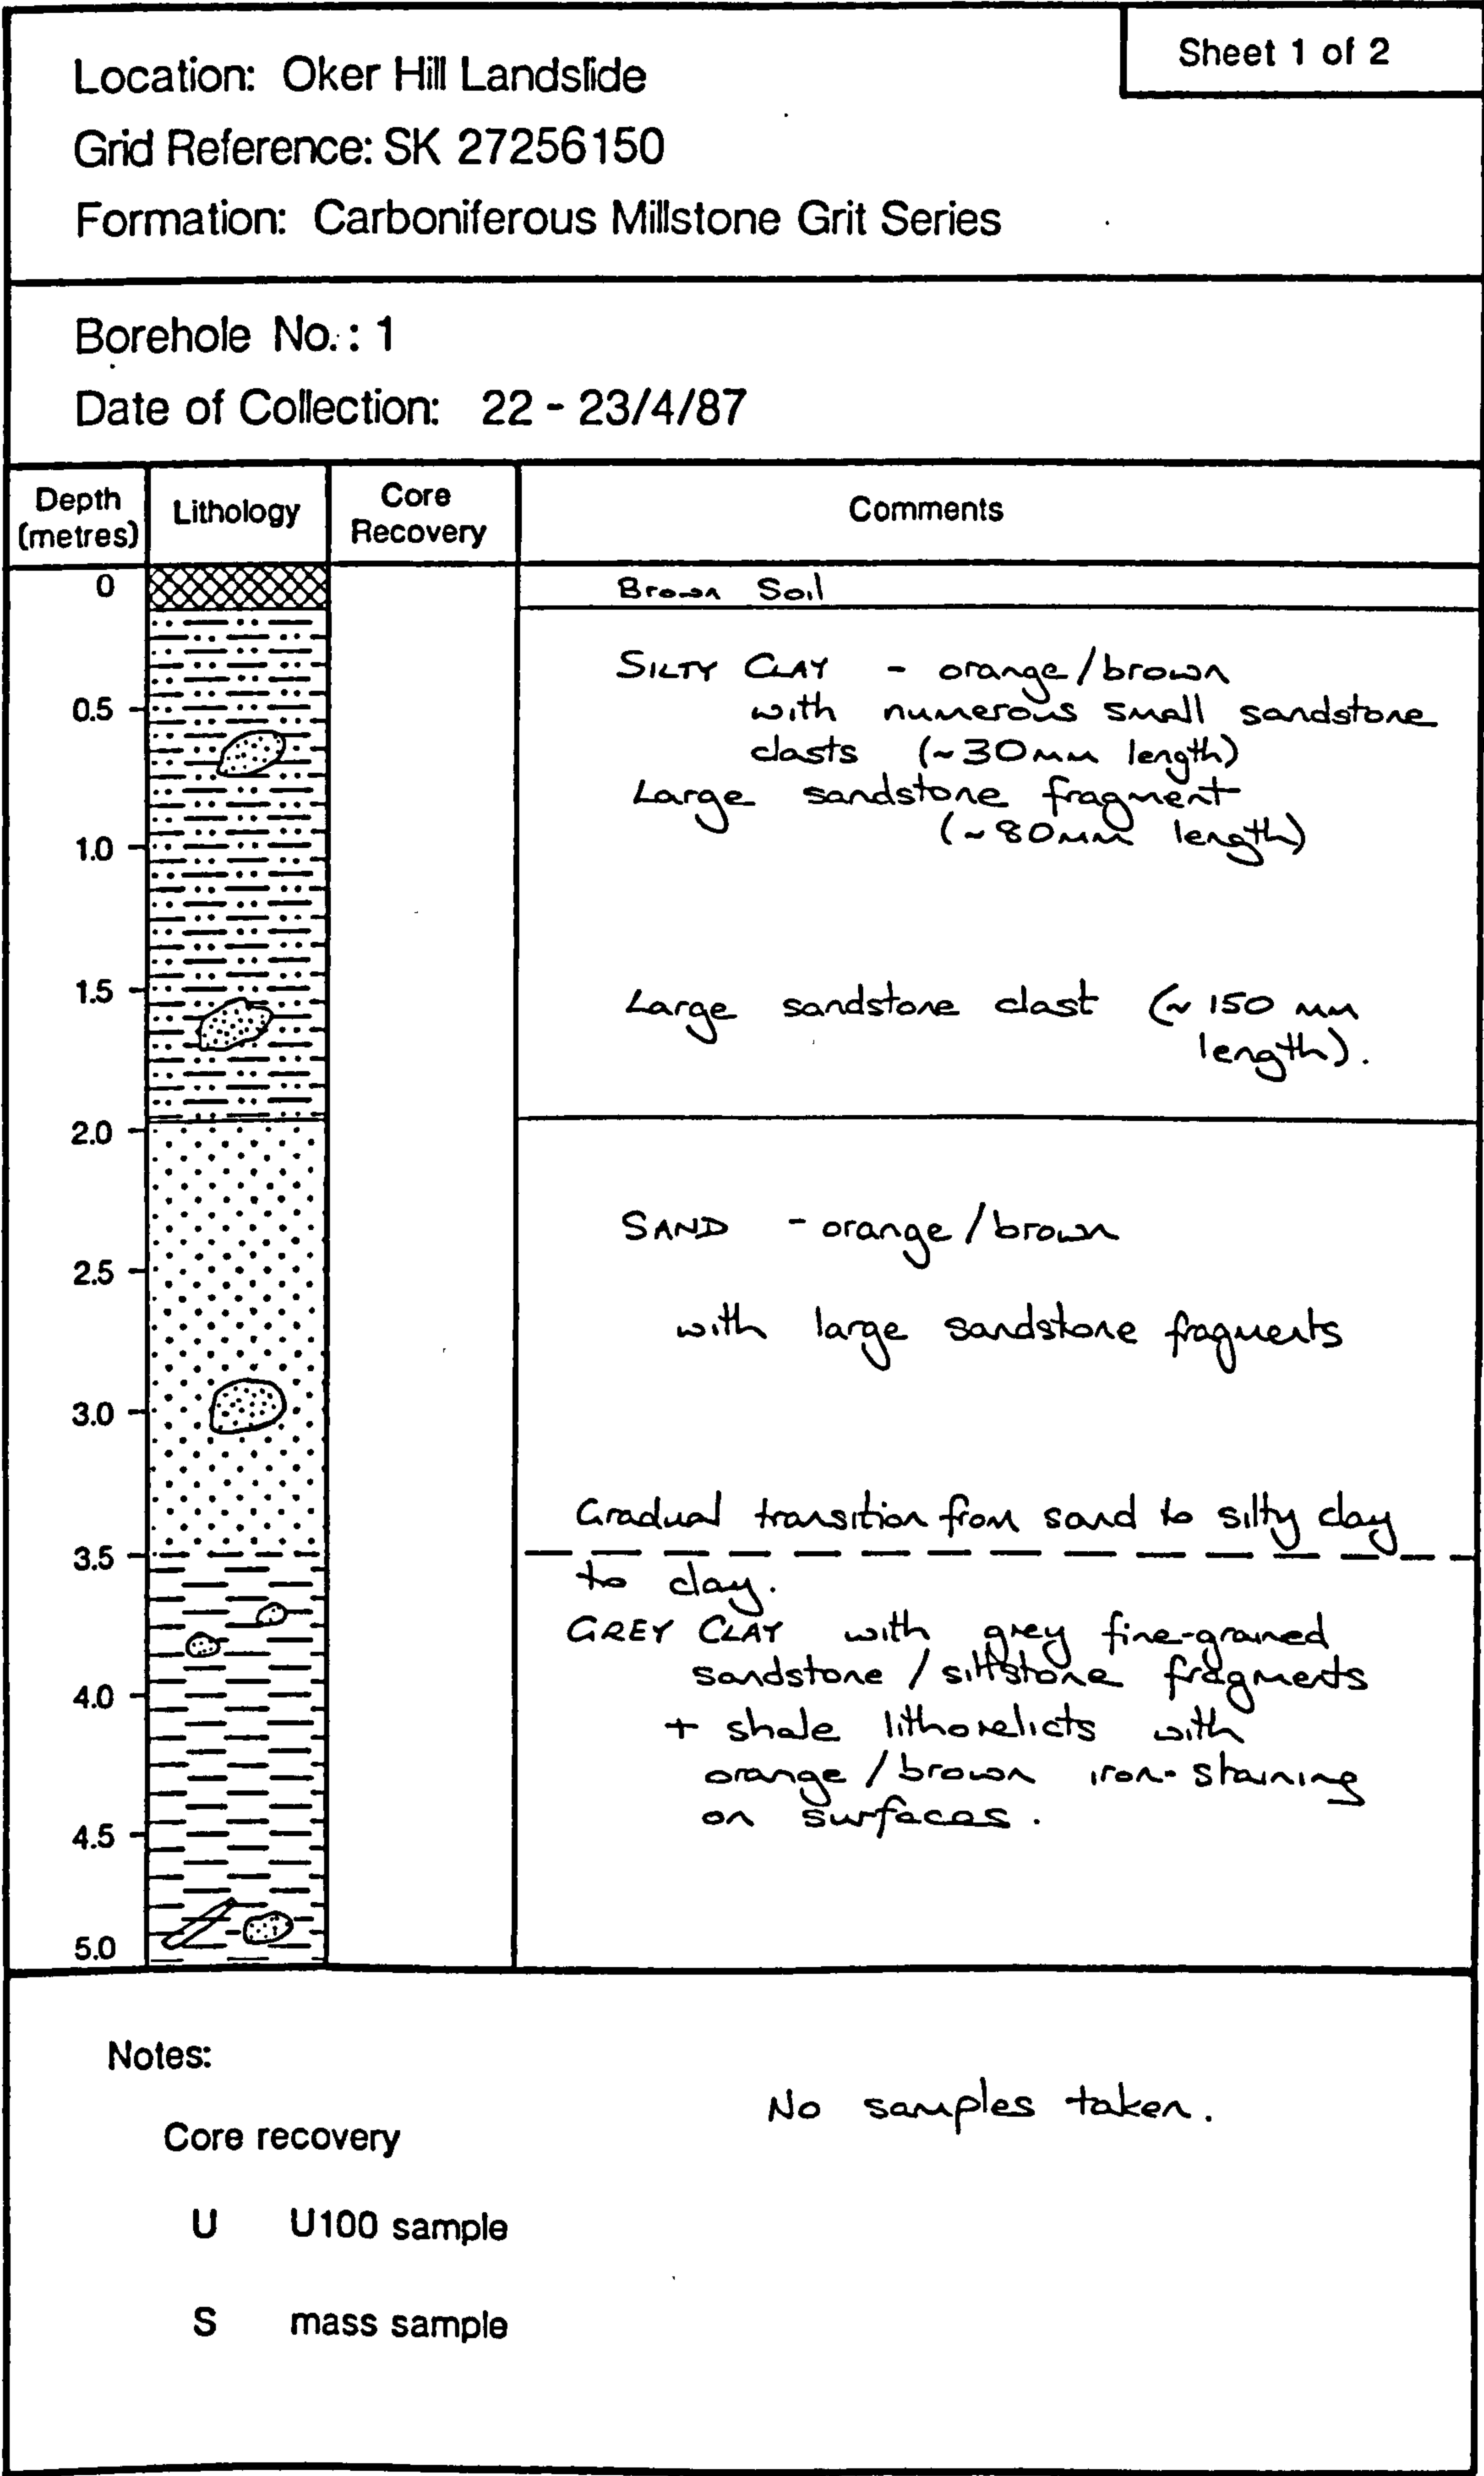 Sheet 1 of 2
Location: Oker Hill Landslide
Grid Reference: SK 27256150
Formation: Carboniferous Millstone Grit Series
Borehole No.: 1
Date of Collection: 22 - 23/4/87
Depth (metres)
Lithology
Core Recovery
Comments
0
Brown Soil
SILTY CLAY - orange/brown
0.5
with numerous small sandstone
clasts (~30mm length)
Large sandstone fragment
(~80mm length)
1.0
1.5
Large sandstone clast (~150 mm
length).
2.0
SAND - orange/brown
2.5
with large sandstone fragments
3.0
Gradual transition from sand to silty clay
3.5
to clay.
GREY CLAY with grey fine-grained
sandstone / siltstone fragments
4.0
+ shale lithorelicts with
orange/brown iron-staining
on surfaces.
4.5
5.0
Notes:
No samples taken.
Core recovery
U U100 sample
S mass sample